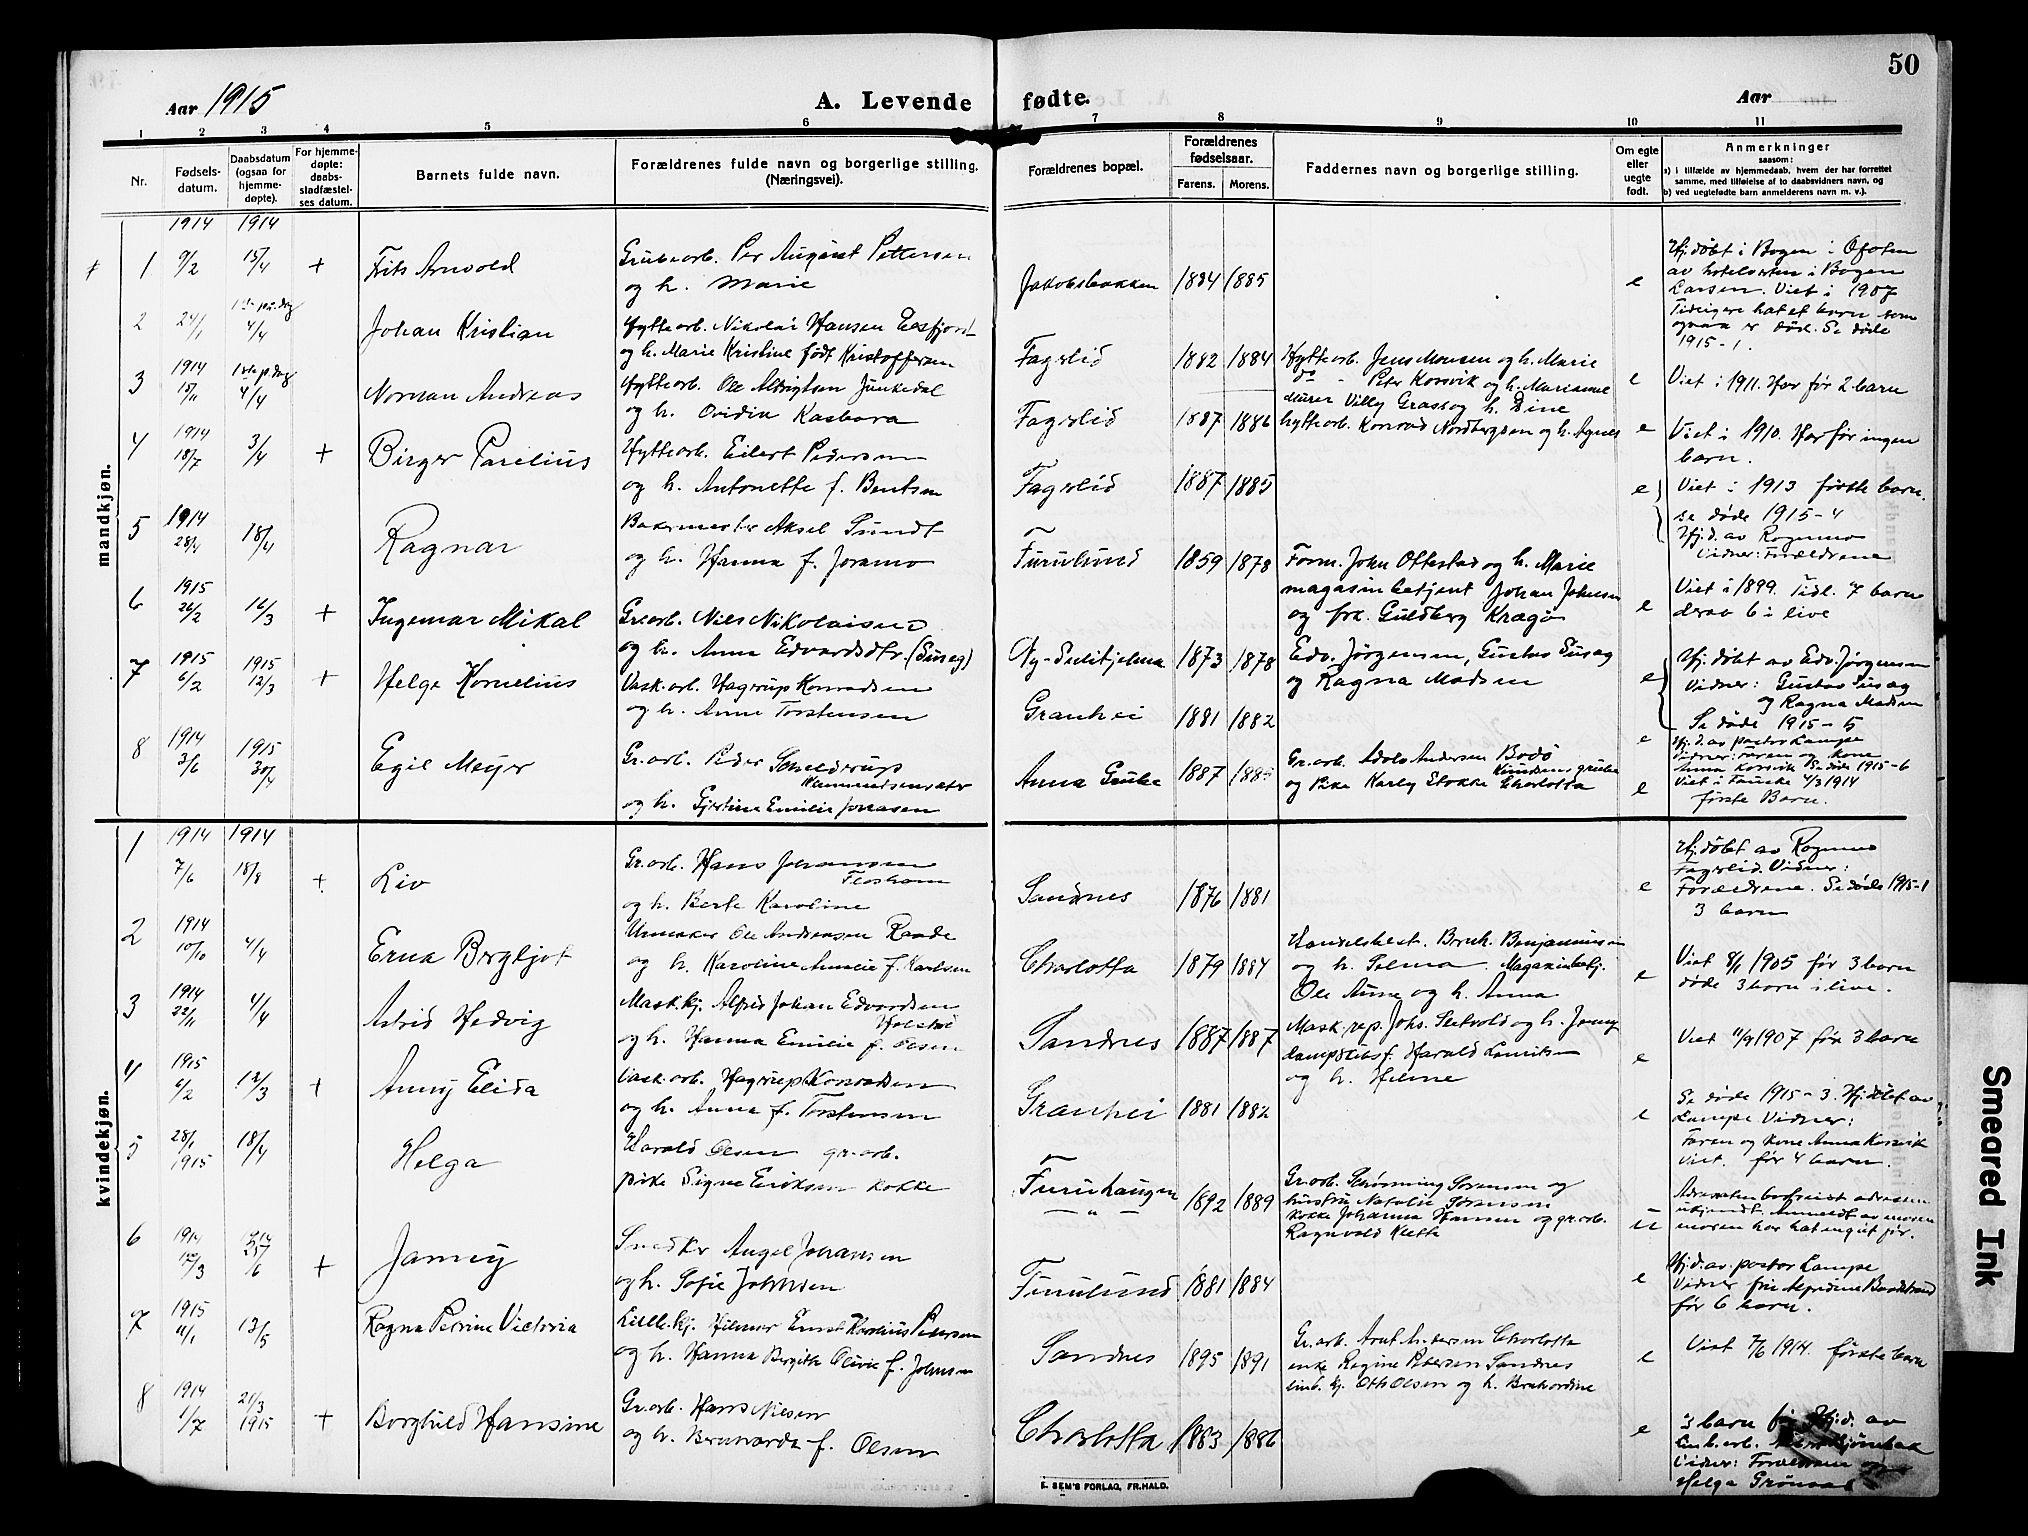 50
Aar 1915
A. Levende fødte.
Aar
1 2 3 4 5 6 7 8 9 10 11
Nr.
Fødsels-
datum.
Daabsdatum
(ogsaa for
hjemme-
døpte).
For hjemme-
døpte:
daabs-
stadfæstel-
ses datum.
Barnets fulde navn.
Forældrenes fulde navn og borgerlige stilling.
(Næringsvei).
Forældrenes bopæl.
Forældrenes
fødselsaar.
Farens. Morens.
Faddernes navn og borgerlige stilling.
Om egte
eller
uegte
født.
Anmerkninger
saasom:
a) i tilfælde av hjemmedaab, hvem der har forrettet
samme, med tilføielse af to daabsvidners navn, og
b) ved uegtefødte barn anmelderens navn m. v.).
mandkjøn.
1914 1914
1 9/2 15/4 + Frits Arnvold
Grubearb. Per August Pettersen
og h. Marie
Jakobsbakken 1884 1885 e
Hj.døbt i Bogen i Ofoten
av hotelverten i Bogen
Larsen. Viet i 1907
Tidligere hat et barn som
ogsaa er død. Se døde
1915-1.
2 24/1 4/4 Johan Kristian
Hytte arb. Nikolai Hansen
og h. Marie Kristine født Kristoffersen
Fagerlid 1882 1884
Hyttearb. Jens Monsen og h. Marie
do Peter Korsvik og h. Marianne
e Viet i 1911. Har før 2 barn
3 1914 15/11 4/4 Norman Andreas
Hyttearb. Ole Junkedal
og h. Ovidia Kasbara
Fagerlid 1887 1886
murer Villy Grass og h. Dine
hyttearb. Konrad Nordbergsen og h. Agnes
e Viet i 1910. Har før ingen
barn.
4 1914 18/7 3/4 + Birger Parelius
Hyttearb. Eilert Pedersen
og h. Antonette f. Bentsen
Fagerlid 1887 1885
e Viet i 1913 første barn.
se døde 1915-4
Hj.d. av Rognmo
Vidner: Forældrene
5 1914 28/4 18/4 Ragnar
Bakermester Aksel Sundt
og h. Hanna f. Joramo
Furulund 1859 1878
Form. John Ottestad og h. Marie
magasinbetjent Johan Johnsen
og frk. Guldberg Kragø
e Viet i 1899. Tidl. 7 barn
derav 6 i live
6 1915 26/2 16/3 + Ingemar Mikal
Gr.arb. Nils Nikolaisen
og h. Anna Edvardsdtr. (Suseg)
Ny-Sulitjelma 1873 1878
Edv. Jørgensen, Gustav Susag
og Ragna Madsen
e Hj.døbt av Edv. Jørgensen
Vidner: Gustav Susag
og Ragna Madsen
Se døde 1915-5
7 1915 6/2 1915 12/3 + Helge Kornelius
Vask.arb. Hagerup Konradsen
og h. Anna Torstensen
Granhei 1881 1882
e Hj.d. av pastor Lampe
Vidner: Faren og kone
Anna Korsvik Se døde 1915-6
8 1914 3/6 1915 30/4 Egil Meyer
Gr.arb. Peder Schelderup
og h. Gjertine Emilie Jonasen
Anna Grube 1887 1885
Gr.arb. Adolf Andersen Bodø
og Pike Karly Stokke Charlotta
e Viet i Fauske 4/3 1914
første Barn.
kvindekjøn.
1 1914 1914
7/6 18/8 + Liv
Gr.arb. Hans Johansen
og h. Berte Karoline
Sandnes 1876 1881
e Hj.døbt av Rognmo
Fagerlid. Vidner:
Forældrene. Se døde 1915-1
3 barn
2 1914 10/10 4/4 Erna Bergljot
Urmaker Ole Andreasen Raade
og h. Karoline Amalie f. Karlsen
Charlotta 1879 1884
Handelsbest. Bernh. Benjaminsen
og h. Selma. Magasinbetj.
Ole Aune og h. Anna
e Viet 8/1 1905 før 3 barn
døde 3 barn i live.
3 1914 22/11 4/4 Astrid Hedvig
Mask.kj. Alfred Johan Edvardsen
og h. Hanna Emilie f. Olsen
Sandnes 1887 1887
Mask.rep. Johs. Sletvold og h. Jenny
dampskibsf. Harald Lauritsen
og h. Helene
e Viet 11/9 1907 før 3 barn
4 1915 6/2 12/3 + Anny Elida
Vask.arb. Hagerup Konradsen
og h. Anna f. Torstensen
Granhei 1881 1882
e Se døde 1915-3. Hj.døbt av
Lampe Vidner:
Faren og kone Anna Korsvik
Viet. før 4 barn.
5 28/1 1915 18/4 Helga
Harald Olsen gr.arb.
pike Signe Eriksen kokke
Furuhaugen 1892 1889
Gr.arb. Sørensen og
hustru Natalie Sørensen
kokke Johanna Hansen og gr.arb.
Ragnvald Klette
u
ukjendt. Anmeldt av moren
moren har hat en gut før.
6 1914 12/3 25/6 + Janny
Snedker Angel Johansen
og h. Sofie Johnsen
Furulund 1881 1884
e Hj.d. av pastor Lampe
før 6 barn.
7 1915 11/1 13/5 Ragna Perrine Victoria
Lille.kj. Hilmar Ernst Karelius Petersen
og h. Hanna Bergith Olivie f. Johnsen
Sandnes 1895 1891
Gr.arb. Arnt Andersen Charlotta
enke Regine Petersen Sandnes
linb.kj. Oth Olsen og h.
e Viet 7/6 1914. første barn
8 1914 1/7 21/3 1915 + Borghild Hansine
Gr.arb. Hans Nilsen
og h. Bernharda f. Olsen
Charlotta 1883 1886
e 3 barn før Hj.d. av
Vidner: Forældrene og
Helga Grønaas
E. SEM'S FORLAG, FR.HALD.
Smeared Ink